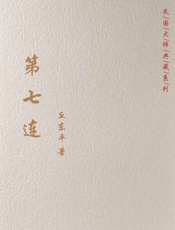 民国大师典藏系列
第七连
丘东平 著